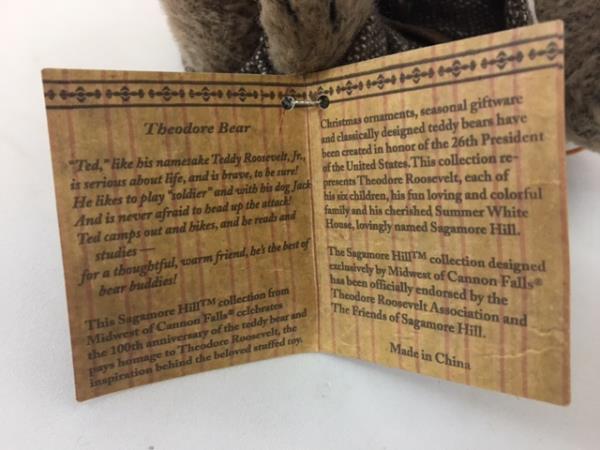 Theodore Bear
"Ted," like his nametake Teddy Roosevelt, Jr.,
is serious about life, and is brave, to be sure!
He likes to play "soldier" and with his dog Jack
And is never afraid to head up the attack!
Ted camps out and hikes, and he reads and
studies —
for a thoughtful, warm friend, he's the best of
bear buddies!
This Sagamore Hill™ collection from
Midwest of Cannon Falls® celebrates
the 100th anniversary of the teddy bear and
pays homage to Theodore Roosevelt, the
inspiration behind the beloved stuffed toy.
Christmas ornaments, seasonal giftware
and classically designed teddy bears have
been created in honor of the 26th President
of the United States. This collection re-
presents Theodore Roosevelt, each of
his six children, his fun loving and colorful
family and his cherished Summer White
House, lovingly named Sagamore Hill.
The Sagamore Hill™ collection designed
exclusively by Midwest of Cannon Falls®
has been officially endorsed by the
Theodore Roosevelt Association and
The Friends of Sagamore Hill.
Made in China